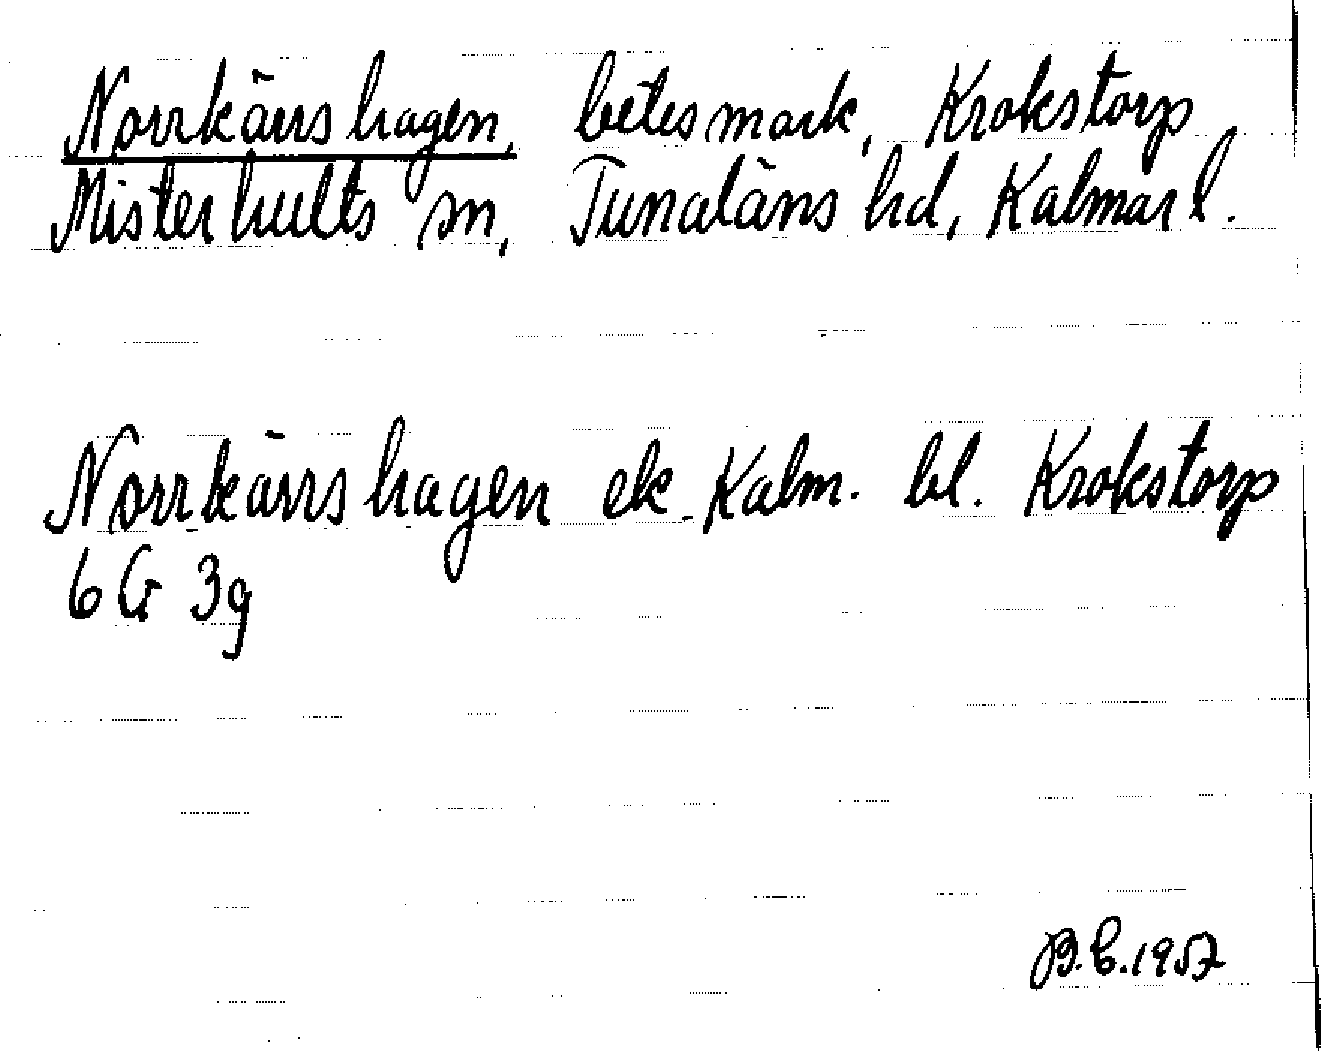 Norrkärrshagen, betesmark, Krokstorp
Misterhults sn, Tunaläns hd, Kalmar l.
Norrkärrshagen ek Kalm. bl. Krokstorp
6 G 3g
B.E.1957